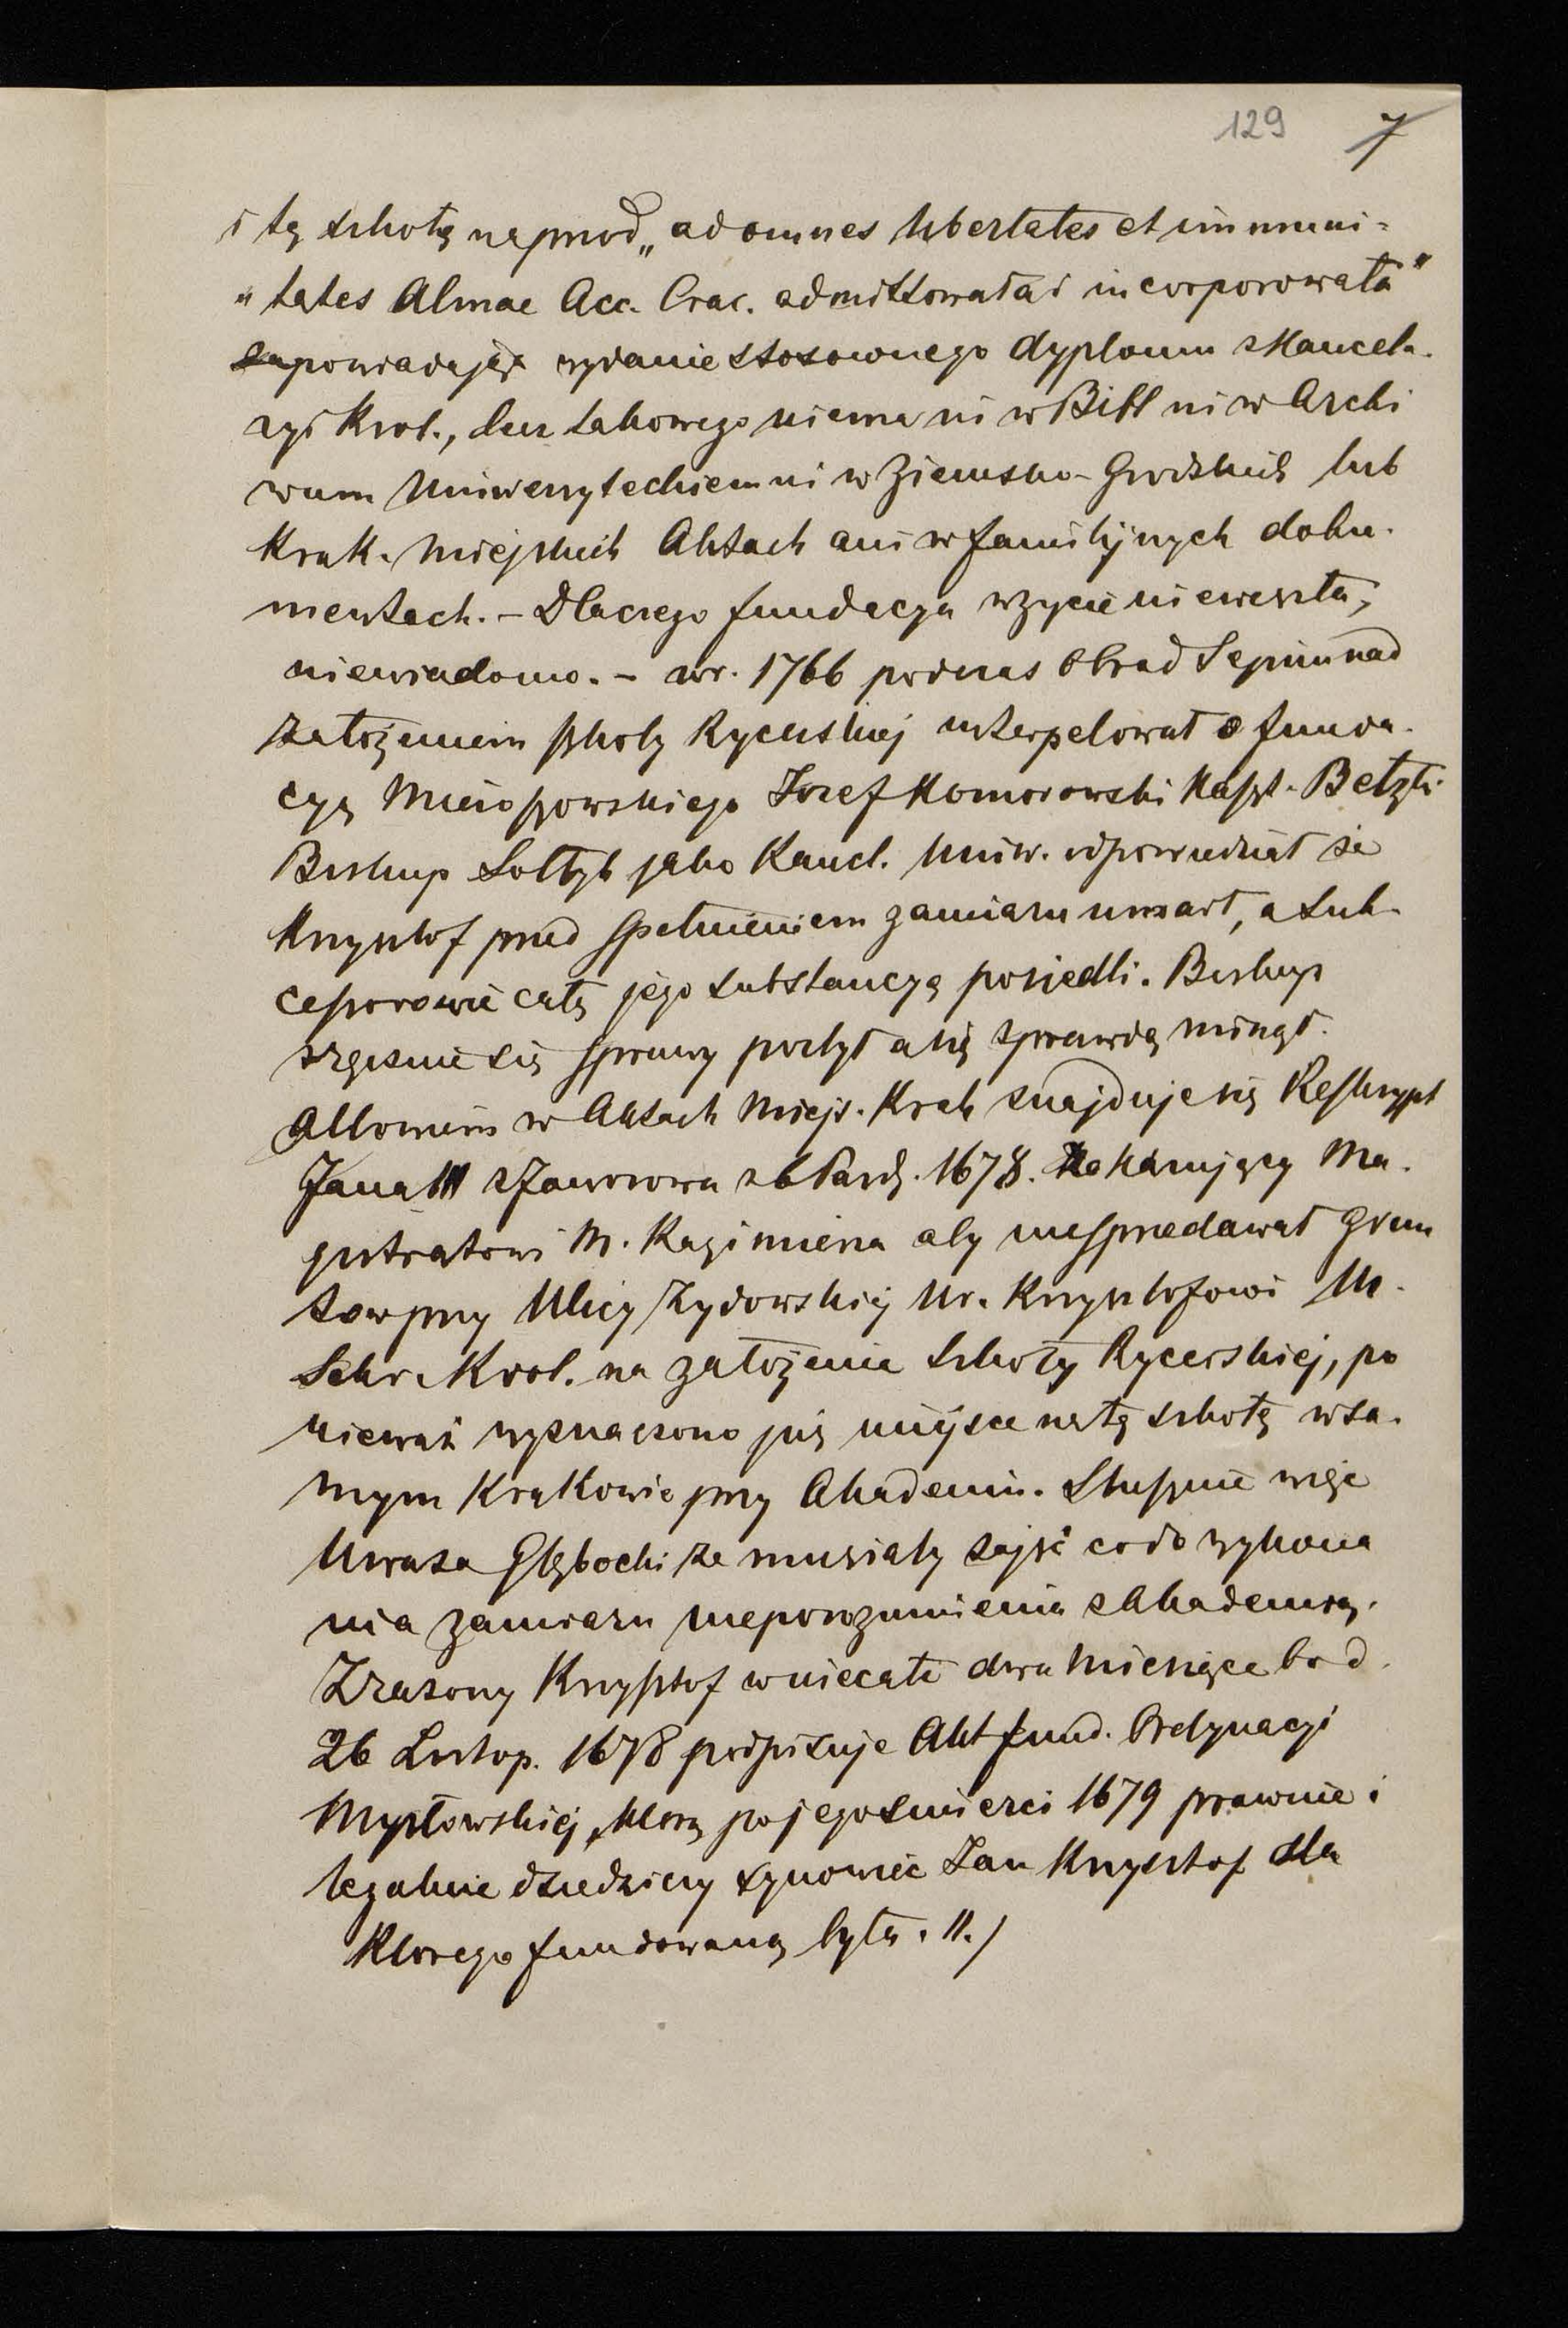 129 7
i tę szkołę naprzod „ad omnes libertates et immuni=
„tates Almae Acc. Crac. admittowała i incorporowała"
zapowiadając wydanie stosownego dyplomu z Kancela-
ryi Krol., lecz takowego niema ni w Bibl ni w Archi
wum Uniwersyteckiem ni w Ziemsko-Grodzkich lub
Krak. Miejskich Aktach ani w familijnych doku-
mentach. – Dlaczego fundacya w życie nieweszła,
niewiadomo. – w r. 1766 podczas Obrad Sejmu nad
założeniem szkoły Rycerskiej interpelował o funda-
cyą Mieroszowskiego Jozef Komorowski Kaszt. Bełzki
Biskup Sołtyk jako Kancl. Uniw. odpowiedział że
Krzysztof przed spełnieniem zamiaru umarł, a suk-
cessorowie całą jego substancyą posiedli. Biskup
ręcznie się sprawy pozbył a nię z prawdą minął.
Albowiem w Aktach Miejs. Krak znajduje się Reskrypt
Jana III z Jaworowa z 6 Paźdz. 1678. Nakazujący Ma-
gistratowi M. Kazimierza aby niesprzedawał Grun
tow przy Ulicy Żydowskiej Ur. Krzysztofowi M.
Sekr. Krol. na założenie Szkoły Rycerskiej, po
nieważ wyznaczono już miejsce na tę szkołę w sa-
mym Krakowie przy Akademii. Słusznie więc
Uważa Głębocki że musiały zajść co do wykona
nia zamiaru nieporozumienia z Akademią.
Zrażony Krzysztof w niecałe dwa Miesiące bo d.
26 Listop. 1678 podpisuje Akt fund. Ordynacyi
Mysłowskiej, którą po jego śmierci 1679 prawnie i
legalnie dziedziczy synowiec Jan Krzysztof dla
Ktorego fundowaną była. 11./